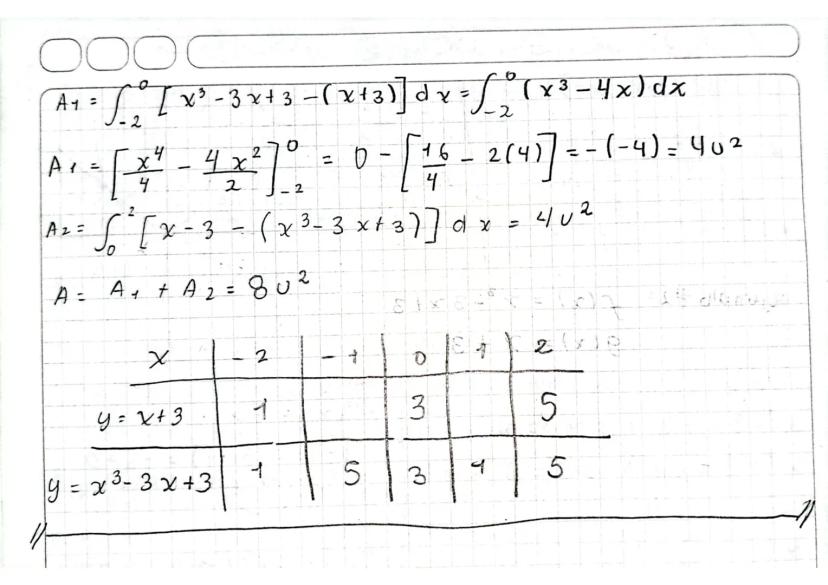 A1 = ∫_{-2}^{0} [x³ - 3x + 3 - (x+3)] dx = ∫_{-2}^{0} (x³ - 4x) dx
A1 = [x⁴/4 - 4x²/2]_{-2}^{0} = 0 - [16/4 - 2(4)] = -(-4) = 4u²
A2 = ∫_{0}^{2} [x - 3 - (x³ - 3x + 3)] dx = 4u²
A = A1 + A2 = 8u²
x | -2 | -1 | 0 | 1 | 2
y = x+3 | 1 | | 3 | | 5
y = x³ - 3x + 3 | 1 | 5 | 3 | 1 | 5